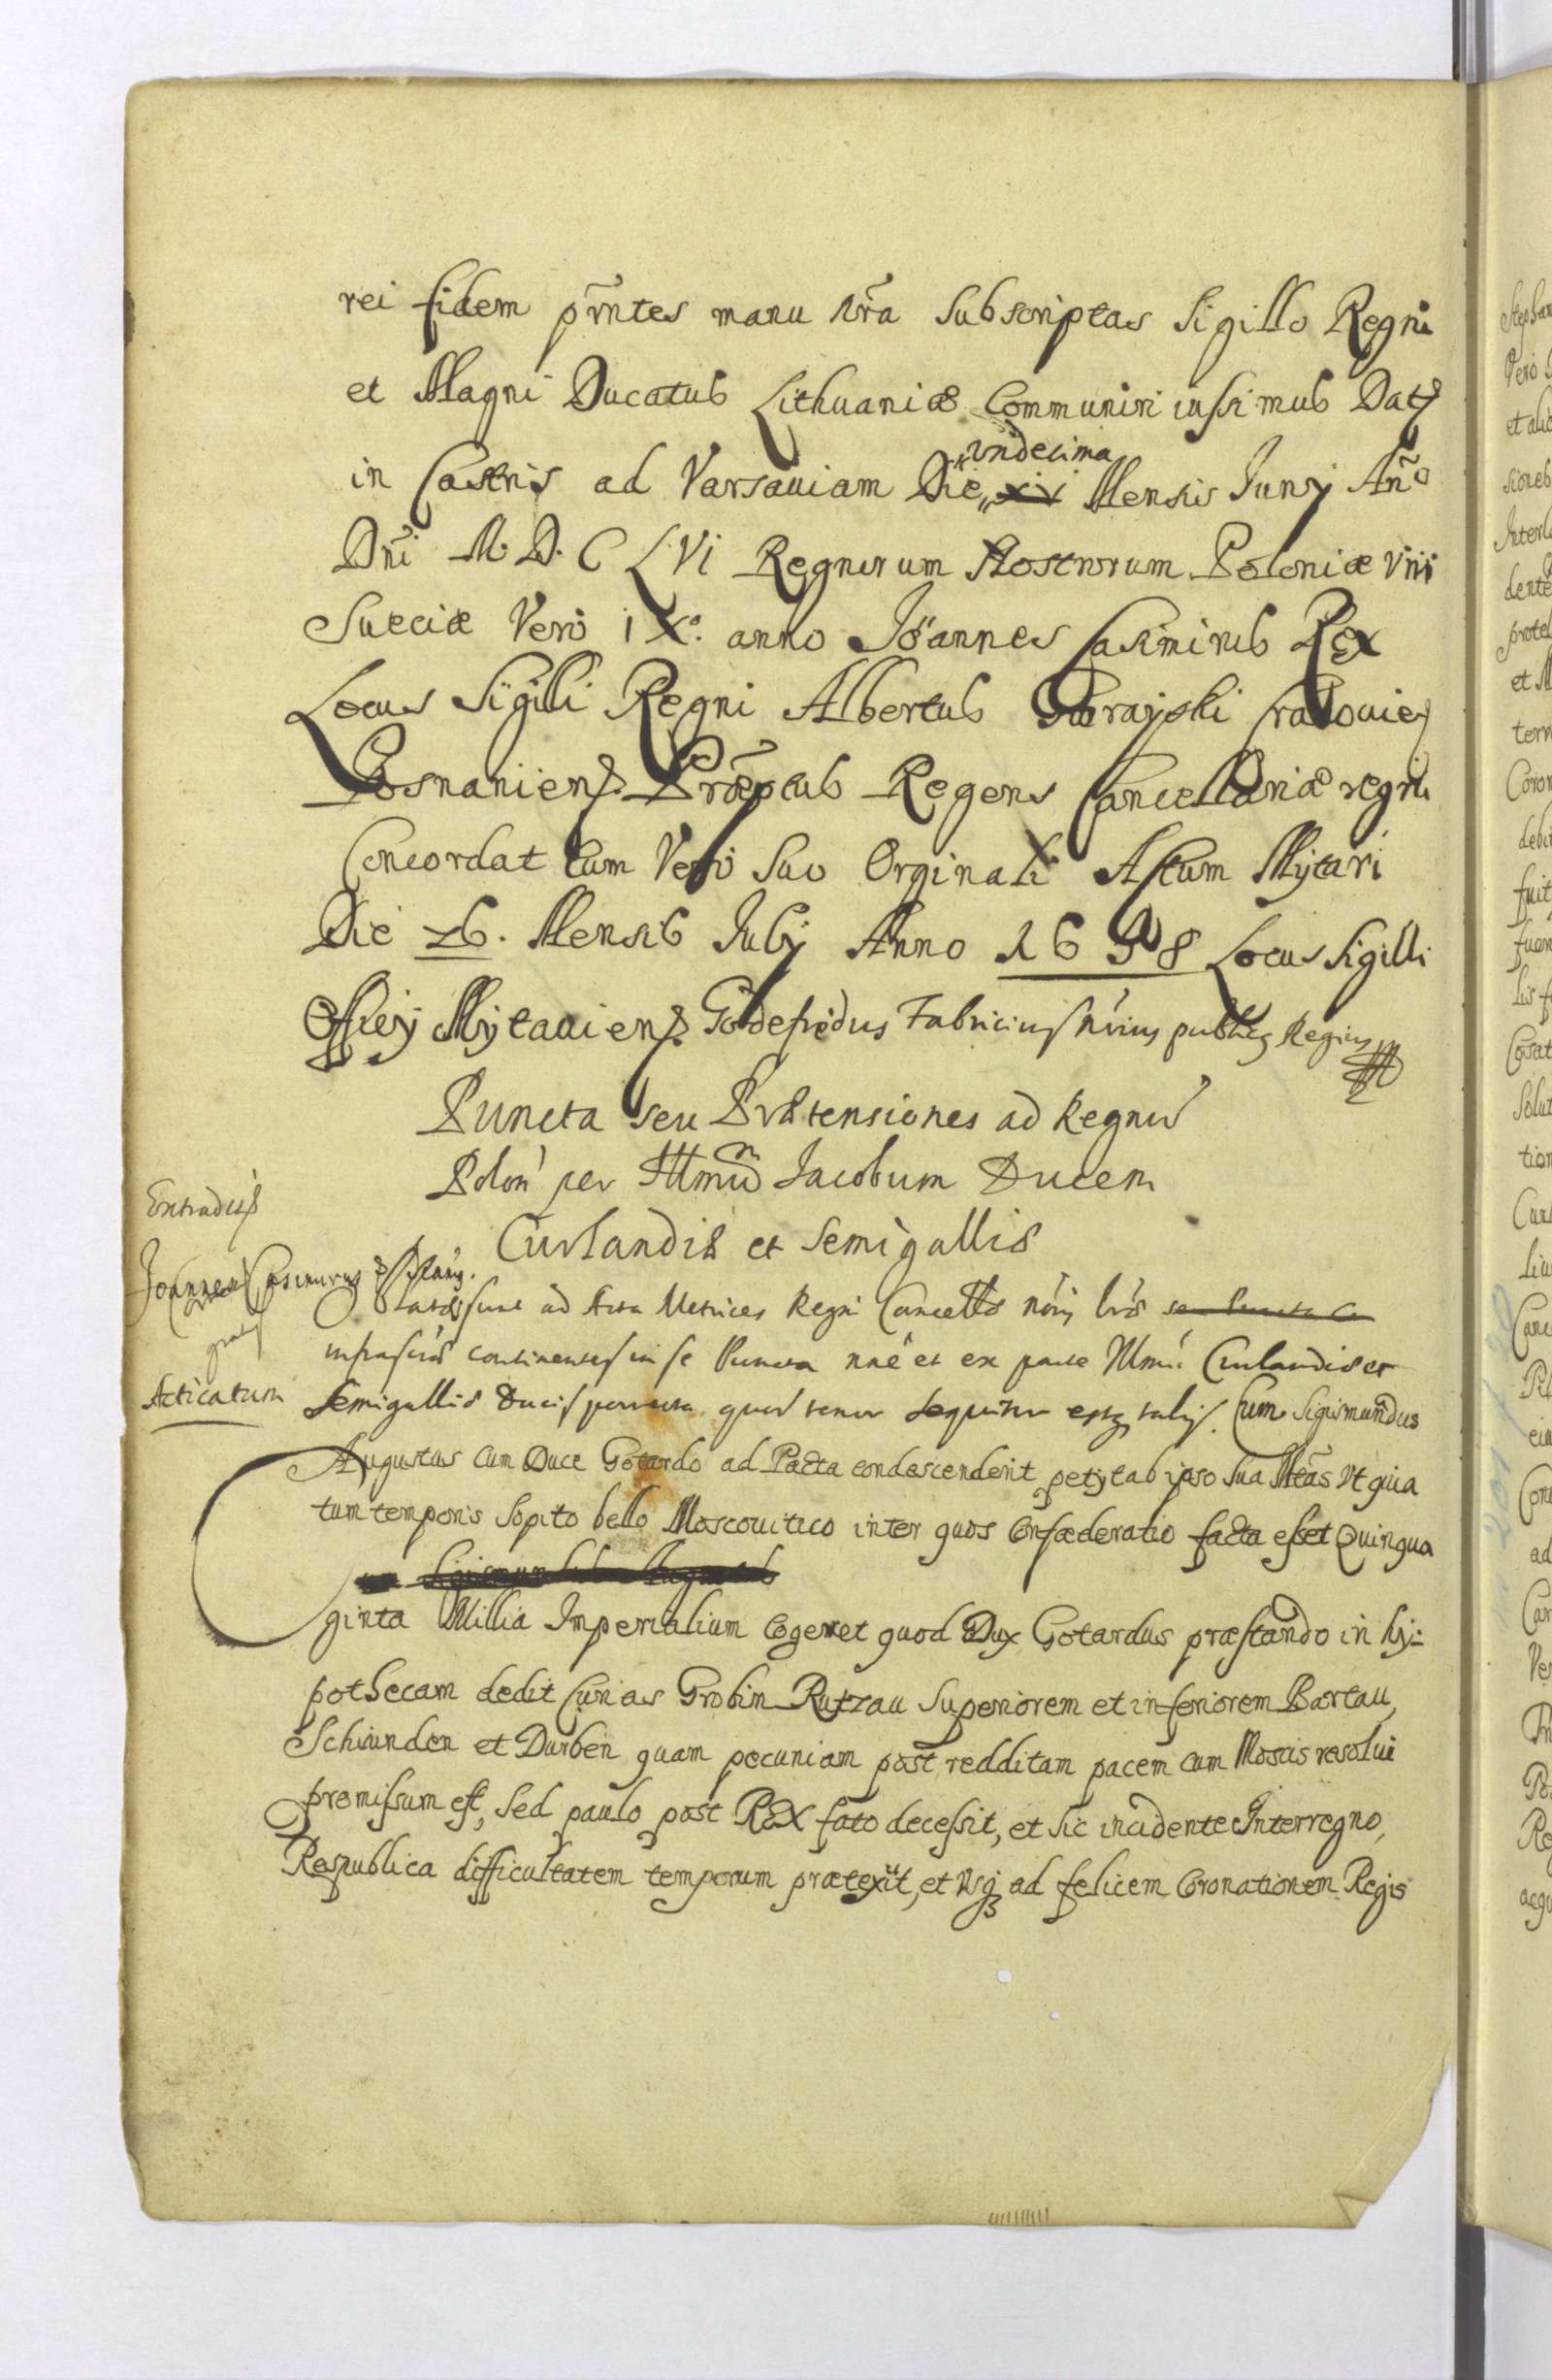 rei fidem pr̃ntes manu nr̃a Subscriptas Sigillo Regni
et Magni Ducatus Lithuaniæ Communiri iussimus Dat
in Castris ad Varsauiam Die undecima Mensis Junij Añ̃o
Dñi M. D. C LVI Regnorum Nostrorum Poloniæ Viii
Sueciæ Vero IX.º anno Joannes Casimirus Rex
Locus Sigilli Regni Albertus Gorayski Cracouien
Posnaniens. Præptus Regens Cancellariæ regni
Concordat Cum Vero Suo Orginali Actum Mytavi
Die 26. Mensis Julij Anno 1698 Locus Sigilli
Officij Mytauiens. Godefredus Fabricius Nrius publicq Regius
Puncta seu Prætensiones ad Regnũ
Polon per Illmũm Jacobum Ducem
Curlandiæ et Semigalliæ
Extraditæ
Joannes Casimirus
Oblatæ sunt ad Acta Metrices Regni Cancell
gratis
infrascr continentes in se Puncta et ex parte Illmi Curlandiæ et
Acticatum
Semigalliæ Ducis porrecta quor tenor Sequitur estq talis. Cum Sigismundus
Augustus cum Duce Gotardo ad Pacta condescenderit petijt ab ipso Sua Mtãs Vt quia
tum temporis Sopito bello Moscouitico inter quos Confæderatio facta esset Quinqua
ginta Millia Imperialium Cogeret quod Dux Gotardus præstando in hy=
pothecam dedit Curias Grobin Rutzau Superiorem et inferiorem Bartau,
Schrunden et Durben quam pecuniam post redditam pacem cum Moscis resolui
promissum est, Sed paulo post Rex fato decessit, et Sic incidente Interregno,
Respublica difficultatem temporum prætexit, et Vsq ad felicem Coronationem Regis